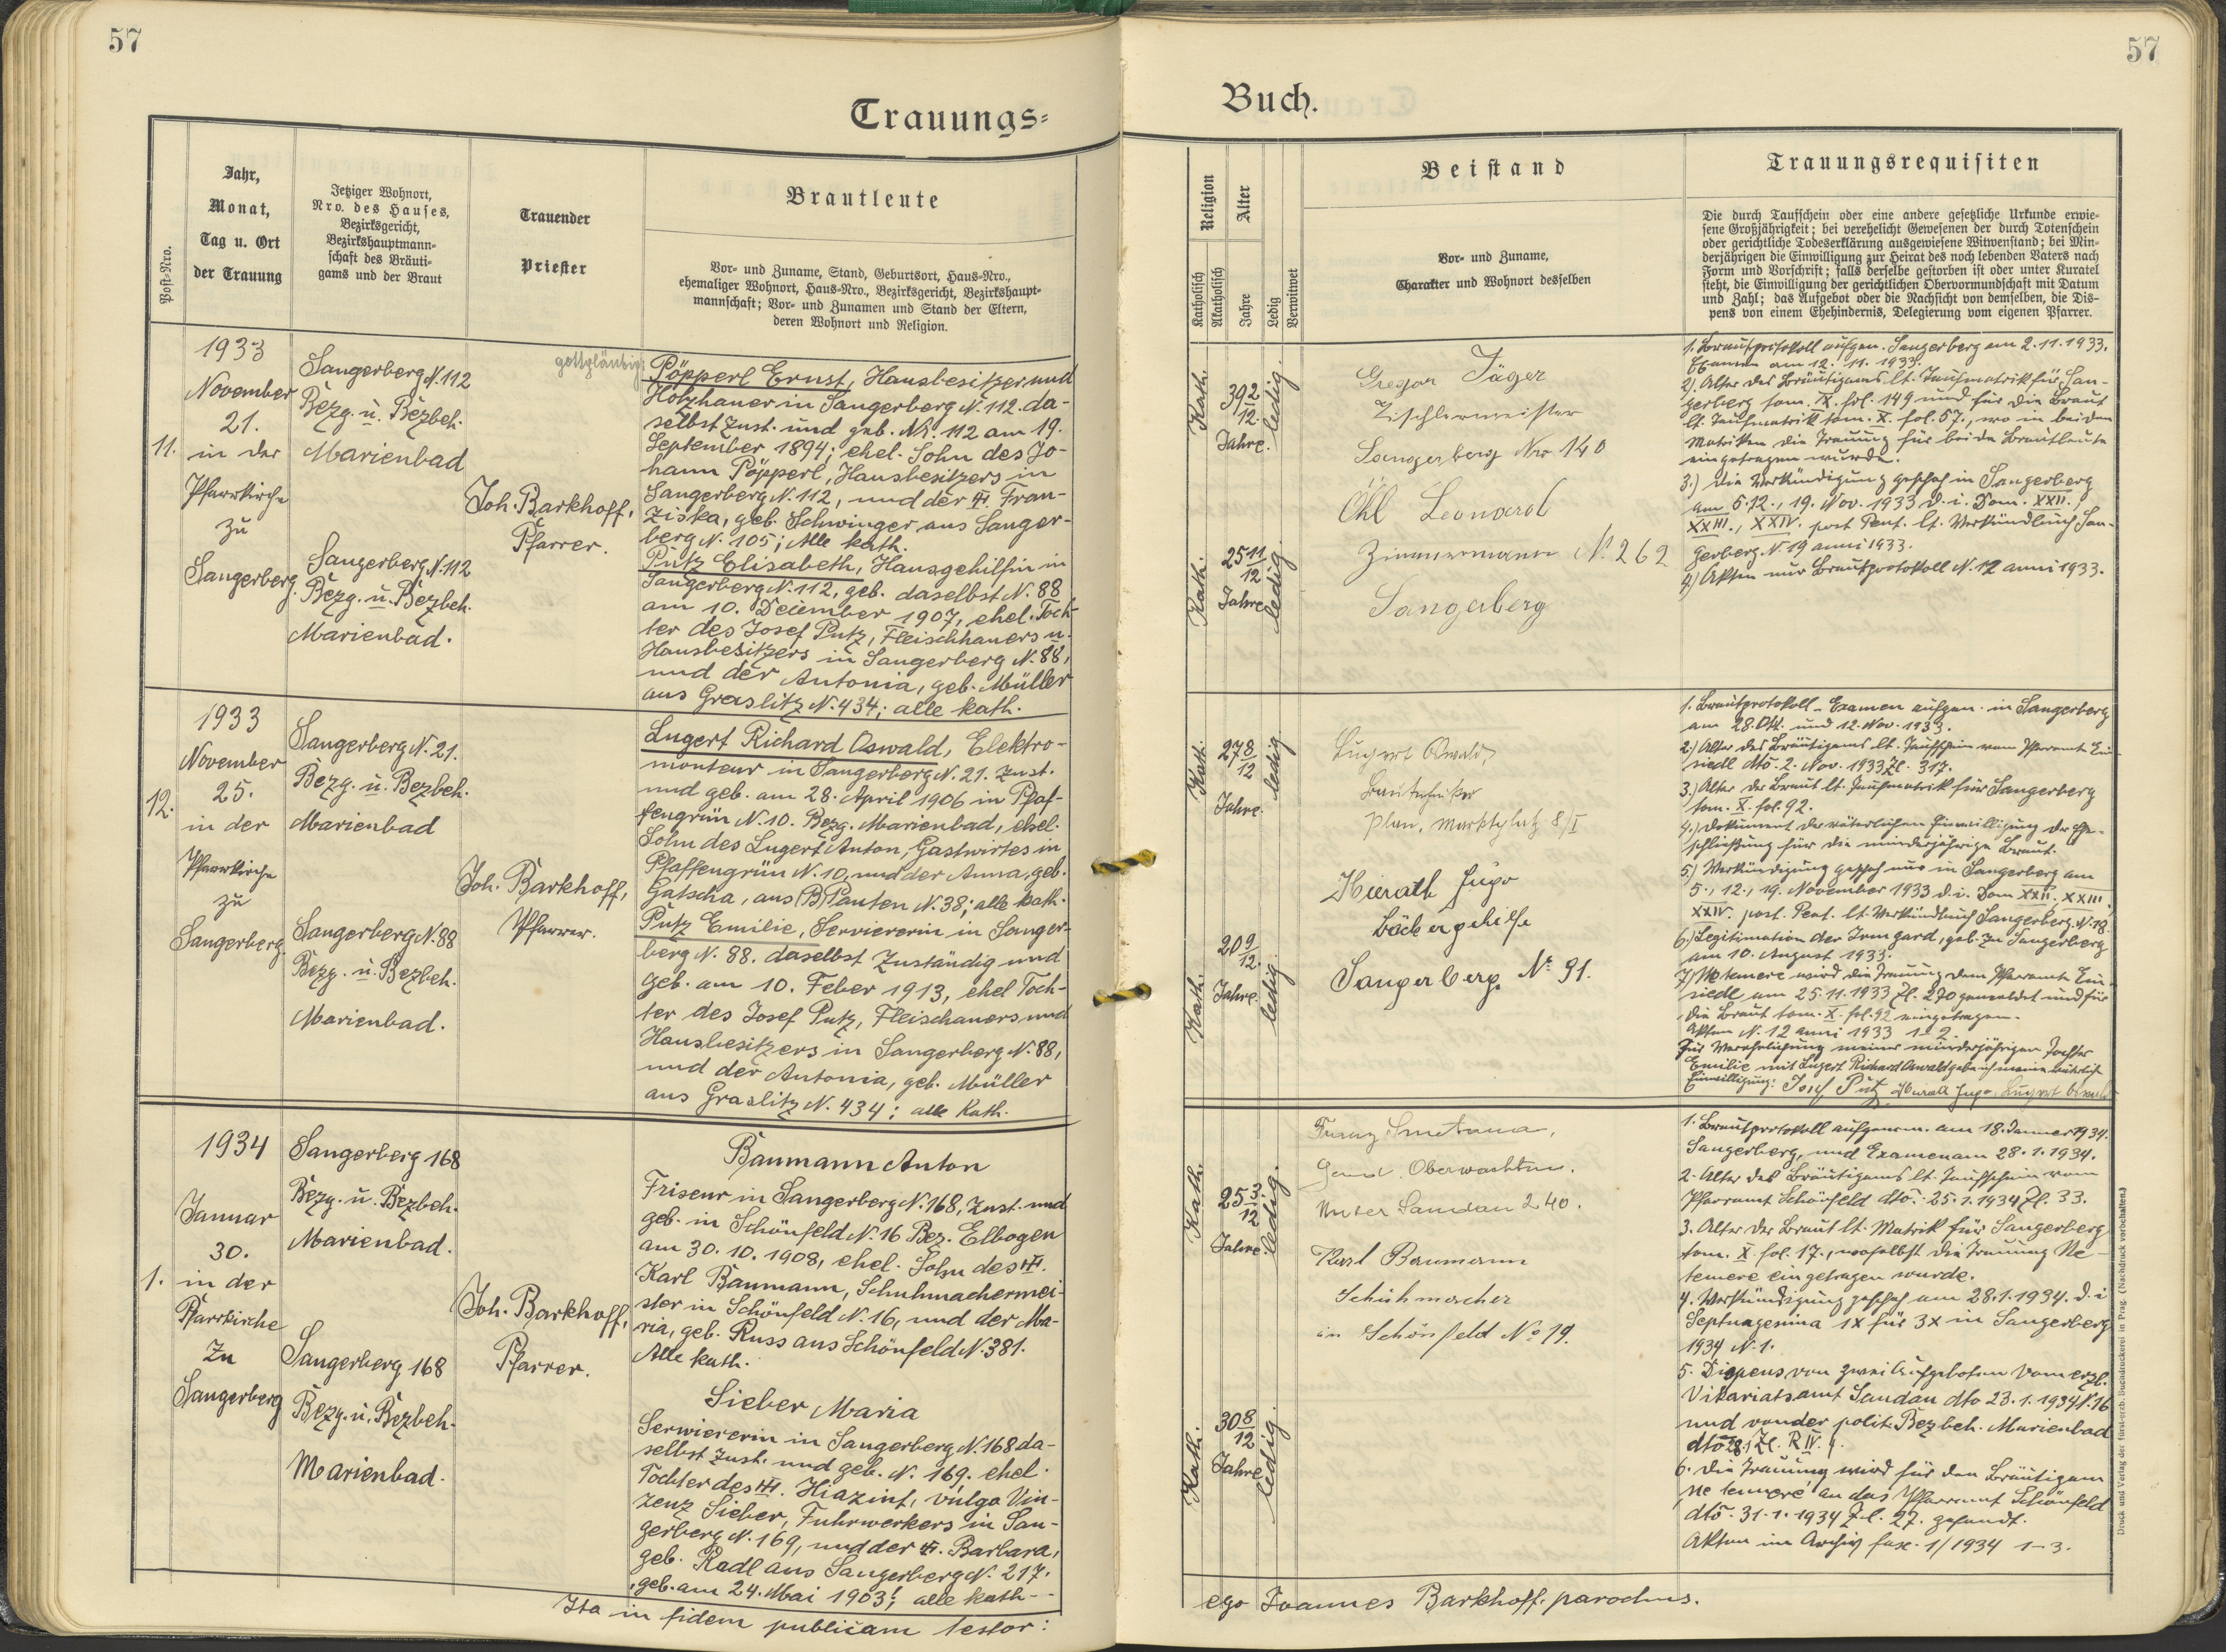 57
57
Trauungs=
Buch.
Post-Nro.
Jahr,
Monat,
Tag u. Ort
der Trauung
Jetziger Wohnort,
Nro. des Hauses,
Bezirksgericht,
Bezirkshauptmann-
schaft des Bräuti-
gams und der Braut
Trauender
Priester
Brautleute
Vor- und Zuname, Stand, Geburtsort, Haus-Nro.,
ehemaliger Wohnort, Haus-Nro., Bezirksgericht, Bezirkshaupt-
mannschaft; Vor- und Zunamen und Stand der Eltern,
deren Wohnort und Religion.
Religion
Katholisch
Akatholisch
Alter
Jahre
Ledig
Verwitwet
Beistand
Vor- und Zuname,
Charakter und Wohnort desselben
Trauungsrequisiten
Die durch Taufschein oder eine andere gesetzliche Urkunde erwie-
sene Großjährigkeit; bei verehelicht Gewesenen der durch Totenschein
oder gerichtliche Todeserklärung ausgewiesene Witwenstand; bei Min-
derjährigen die Einwilligung zur Heirat des noch lebenden Vaters nach
Form und Vorschrift; falls derselbe gestorben ist oder unter Kuratel
steht, die Einwilligung der gerichtlichen Obervormundschaft mit Datum
und Zahl; das Aufgebot oder die Nachsicht von demselben, die Dis-
pens von einem Ehehindernis, Delegierung vom eigenen Pfarrer.
11.
1933
November
21.
in der
Pfarrkirche
zu
Sangerberg.
Sangerberg N. 112
Bezg. u. Bezbeh.
Marienbad
Sangerberg N. 112
Bezg. u. Bezbeh.
Marienbad.
Joh. Barkhoff,
Pfarrer.
gottgläubig
Pöpperl Ernst, Hausbesitzer und
Holzhauer in Sangerberg N. 112. da-
selbst zust. und geb. Nr. 112 am 19.
September 1894; ehel. Sohn des Jo-
hann Pöpperl, Hausbesitzers in
Sangerberg N. 112, und der Fran-
ziska, geb. Schwinger aus Sanger-
berg N. 105; Alle kath.
Putz Elisabeth, Hausgehilfin in
Sangerberg N. 112, geb. daselbst N. 88
am 10. Deiember 1907, ehel. Toch-
ter des Josef Putz, Fleischhauers u.
Hausbesitzers in Sangerberg N. 88,
und der Antonia, geb. Müller
aus Graslitz N. 434; alle kath.
Kath.
39 2/12
Jahre.
ledig.
Kath.
25 11/12
Jahre
ledig.
Gregor Jäger
Tischlermeister
Sangerberg Nro 140
Öhl Leonard
Zimmermann N. 262
Sangerberg
1. Brautprotokoll aufgen. Sangerberg am 2.11.1933.
Examen am 12. 11. 1933.
2). Alter des Bräutigams lt. Taufmatrik für San-
gerberg tom. IX. fol. 149 und für die Braut
lt. Taufmatrik tom. X. fol. 57., wo in beiden
Matriken die Trauung für beide Brautleute
eingetragen wurde.
3.) Die Verkündigung geschah in Sangerberg
am 5. 12., 19. Nov. 1933 d. i. Dom. XXII.,
XXIII., XXIV. post Pent. lt. Verkündbuch San-
gerberg N. 19 anni 1933.
4) Akten nur Brautprotokoll N. 12 anni 1933.
12.
1933
November
25.
in der
Pfarrkirche
zu
Sangerberg.
Sangerberg N. 21.
Bezg. u. Bezbeh.
Marienbad
Sangerberg N. 88
Bezg. u. Bezbeh.
Marienbad.
Joh. Barkhoff,
Pfarrer.
Lugert Richard Oswald, Elektro-
monteur in Sangerberg N. 21. zust.
und geb. am 28. April 1906 in Pfaf-
fengrün N. 10. Bezg. Marienbad, ehel.
Sohn des Lugert Anton, Gastwirtes in
Pfaffengrün N. 10, und der Anna, geb.
Gatscha, aus (B) Pauten N. 38; alle kath.
Putz Emilie, Serviererin in Sanger-
berg N. 88. daselbst zuständig und
geb. am 10. Feber 1913, ehel Toch-
ter des Josef Putz, Fleischauers und
Hausbesitzers in Sangerberg N. 88,
und der Antonia, geb. Müller
aus Graslitz N. 434; alle kath.
Kath.
27 8/12
Jahre.
ledig
Kath.
20 9/12.
Jahre.
ledig.
Lugert Oswald
Bautechniker
Plan, Marktplatz 8/I
Hierath Hugo
Bäckergehilfe
Sangerberg № 91.
1. Brautprotokoll - Examen aufgen. in Sangerberg
am 28. Okt. und 12. Nov. 1933.
2.) Alter des Bräutigams lt. Taufschein vom Pfarramt Ein-
siedl dto. 2. Nov. 1933 Zl. 317.
3.) Alter der Braut lt. Taufmatrik für Sangerberg
tom. X. fol. 92.
4.) Dokument der väterlichen Einwilligung der Ehe-
schließung für die minderjährige Braut.
5.) Verkündigung geschah nur in Sangerberg am
5., 12., 19. November 1933 d. i. Dom XXII., XXIII
XXIV. post. Pent. lt. Verkündbuch Sangerberg N. 18.
6.) Legitimation der Irmgard, geb. zu Sangerberg
am 10. August 1933.
7) Ne temere wird die Trauung dem Pfarramte Ein-
siedl am 25. 11. 1933 Zl. 270 gemeldet und für
die Braut tom. X. fol. 92 eingetragen.
Akten N. 12 anni 1933 1-2.
Zur Verehelichung meiner minderjährigen Tochter
Emilie mit Lugert Richard Oswald gebe ich meine väterliche
Einwilligung: Josef Putz Hierath Hugo Lugert Oswald
1.
1934
Januar
30.
in der
Pfarrkirche
zu
Sangerberg
Sangerberg 168
Bezg. u. Bezbeh.
Marienbad.
Sangerberg 168
Bezg. u. Bezbeh.
Marienbad.
Joh. Barkhoff,
Pfarrer.
Baumann Anton
Friseur in Sangerberg N. 168, zust. und
geb. in Schönfeld N. 16 Bez. Elbogen
am 30. 10. 1908, ehel. Sohn des
Karl Baumann, Schuhmachermei-
ster in Schönfeld N. 16, und der Ma-
ria, geb. Russ aus Schönfeld N. 381.
Alle kath.
Sieber Maria
Serviererin in Sangerberg N. 168 da-
selbst zust. und geb. N. 169. ehel.
Tochter des Hiazint, vulgo Vin-
zenz Sieber, Fuhrwerkers in San-
gerberg N. 169, und der Barbara,
geb. Radl aus Sangerberg N. 217.
geb. am 24. Mai 1903; alle kath.
Kath.
25 3/12
Jahre
ledig.
Kath.
30 8/12
Jahre
ledig.
Franz Smetana,
Gend. Oberwachtm.
Unter Sandau 240.
Karl Baumann
Schuhmacher
in Schönfeld No 19.
1. Brautprotokoll aufgenom. am 18. Jänner 1934.
Sangerberg, und Examen am 28. 1. 1934.
2. Alter des Bräutigams lt. Taufschein vom
Pfarramt Schönfeld dto. 25. 1. 1934 Zl. 33.
3. Alter der Braut lt. Matrik für Sangerberg
tom. X. fol. 17., woselbst die Trauung Ne
temere eingetragen wurde.
4. Verkündigung geschah am 28. 1. 1934. d. i.
Septuagesima 1x für 3x in Sangerberg
1934 N. 1.
5. Dispens von zwei Aufgeboten vom erzb.
Vikariatsamt Sandau dto 23. 1. 1934 N. 16
und von der polit. Bez. beh. Marienbad
dto 28. 1. Zl. R IV. 4.
6. Die Trauung wird für den Bräutigam
ne temere an das Pfarramt Schönfeld
dto. 31. 1. 1934 Zl. 27. gesandt.
Akten im Archiv fasc. 1/1934 1-3.
Ita in fidem publicam testor:
ego Joannes Barkhoff, parochus.
Druck und Verlag der fürst-erzb. Buchdruckerei in Prag. (Nachdruck vorbehalten.)